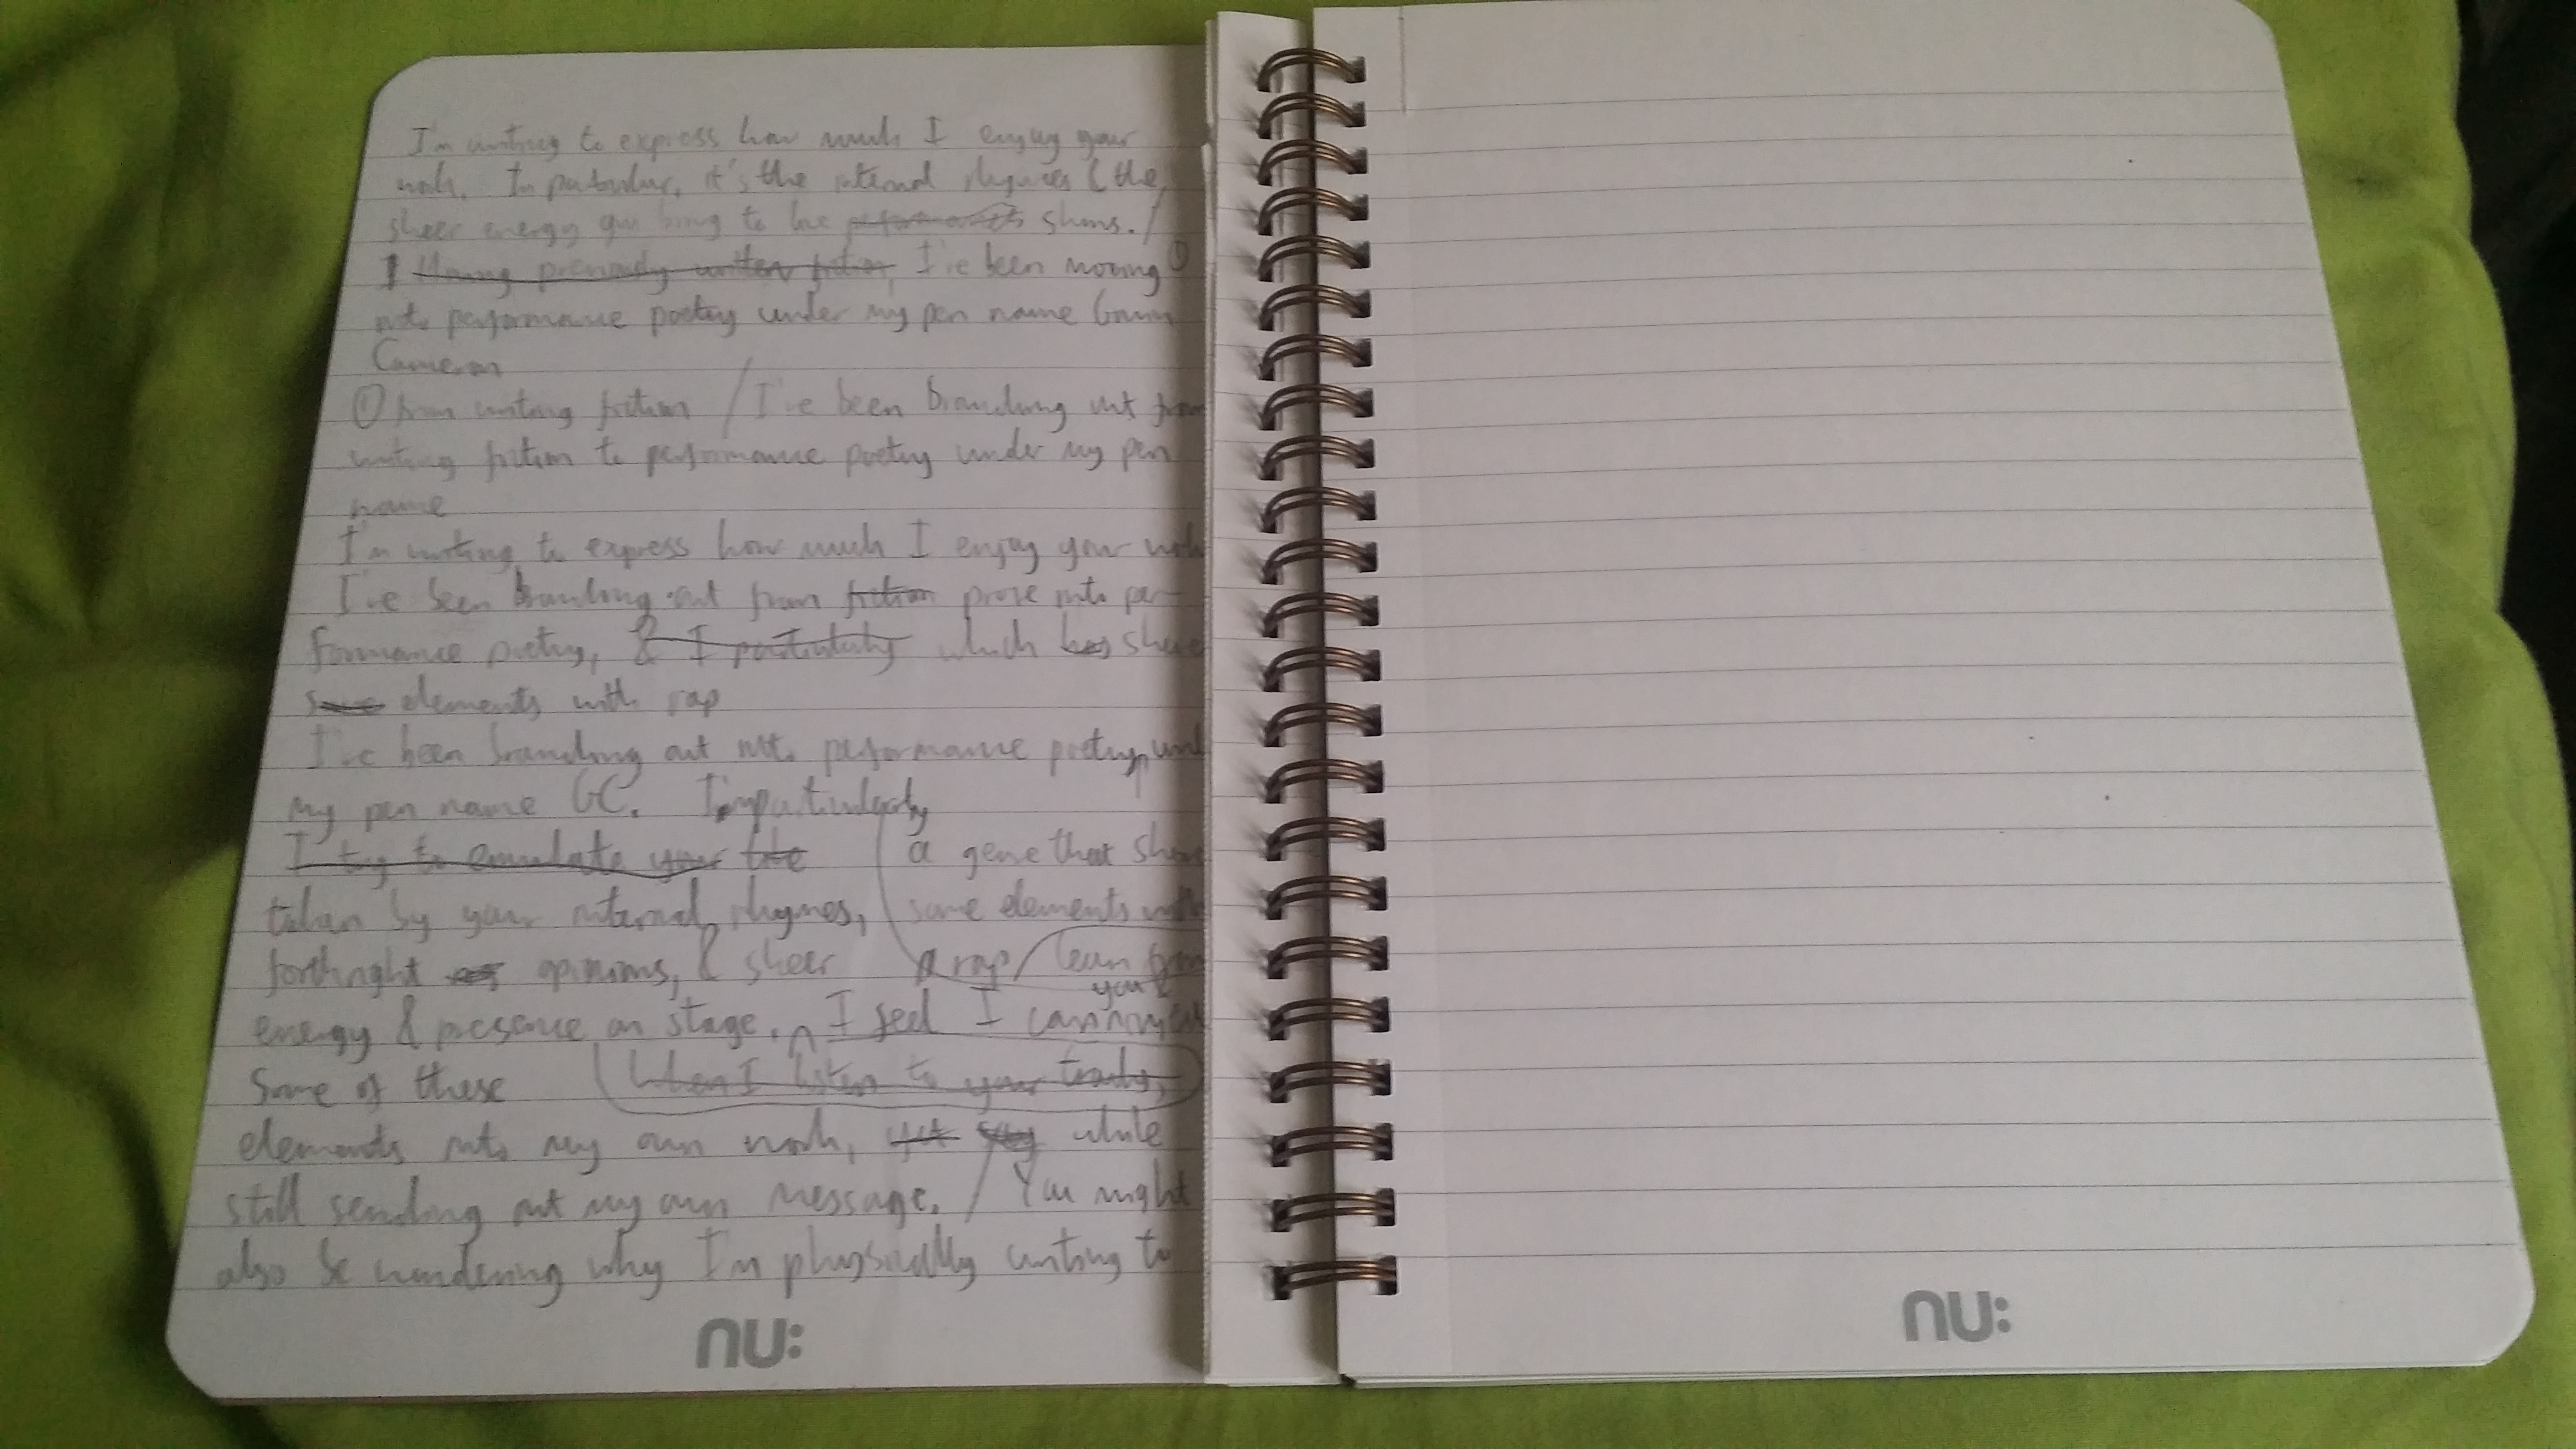 I'm writing to express how much I enjoy your
work. In particular, it's the internal rhymes & the
sheer energy you bring to live performances shows. /
I Having previously written fiction, I've been moving ①
into performance poetry under my pen name Gavin
Cameron
① from writing fiction / I've been branching out from
writing fiction to performance poetry under my pen
name
I'm writing to express how much I enjoy your work
I've been branching out from fiction prose into per-
formance poetry, & I particularly which has share
some elements with rap
I've been branching out into performance poetry, und
my pen name GC. I'm particularly
I try to emulate your the
a genre that shares
taken by your internal rhymes,
some elements with
forthright opinions, & sheer
rap / learn from
you &
energy & presence on stage. I feel I can
some of these
When I listen to your tracks,
elements into my own work, yet while
still sending out my own message. / You might
also be wondering why I'm physically writing to
nu:
nu: